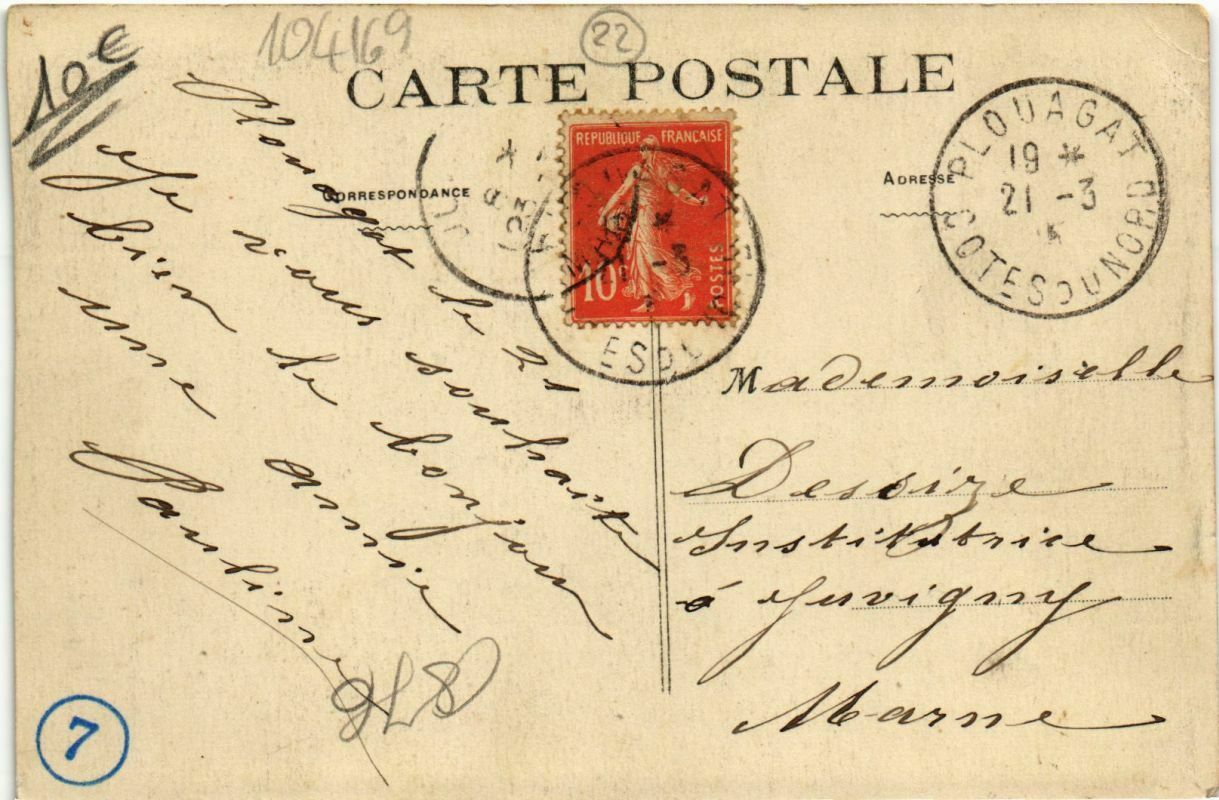 104169
22
10€
CARTE POSTALE
CORRESPONDANCE
ADRESSE
REPUBLIQUE FRANÇAISE
10c
POSTES
PLOUAGAT
19 *
21 - 3
COTES DU NORD
Plouagat le 21
Je vous souhaite
bien le bonjour
une amie
Pauline
Mademoiselle
Desoize
Institutrice
à Juvigny
Marne
7